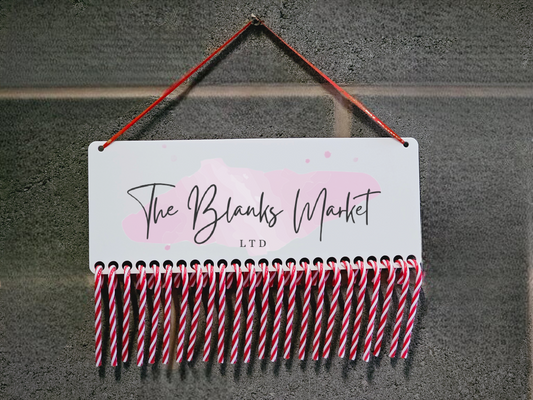 The Blanks Market
LTD